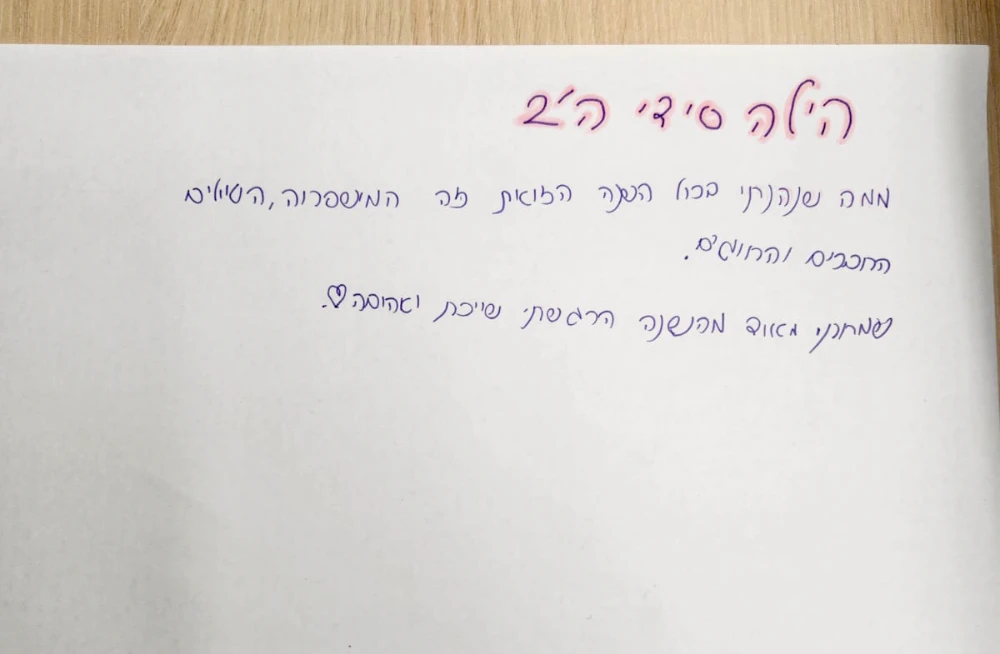 הילה סידי ה'2
ממה שנהנתי בכול השנה הזואת זה המישפרוה, הטיולים
החברים והחוגים.
שמחתי מאוד מהשנה הרגשתי שייכת ואהובה♡.